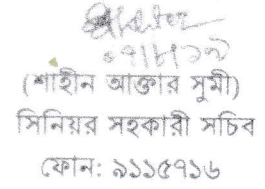 ০৭/৮/১৯
(শাহীন আক্তার সুমী)
সিনিয়র সহকারী সচিব
ফোন: ৯১১৫৭১৬